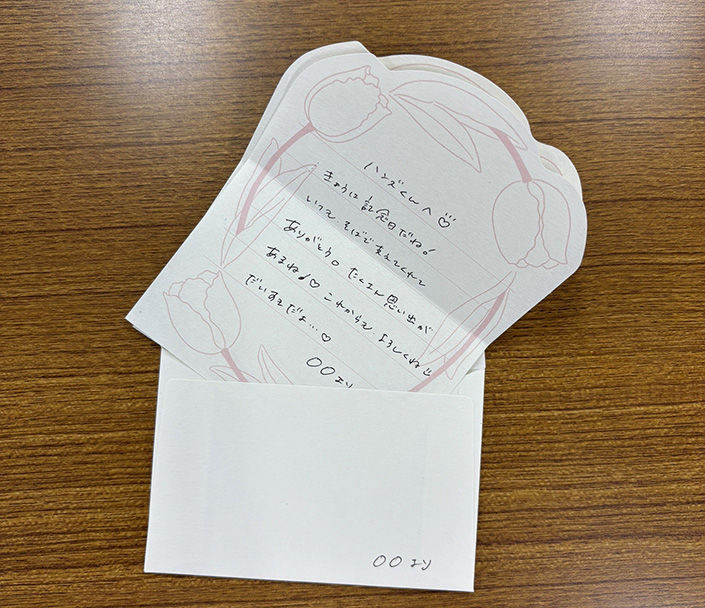 ハンズくんへ♡
きょうは記念日だね!
いつも、そばで支えてくれて
ありがとう。たくさん思い出が
あるね!♡これからも、よろしくね
だいすきだよ…♡
〇〇より
〇〇より